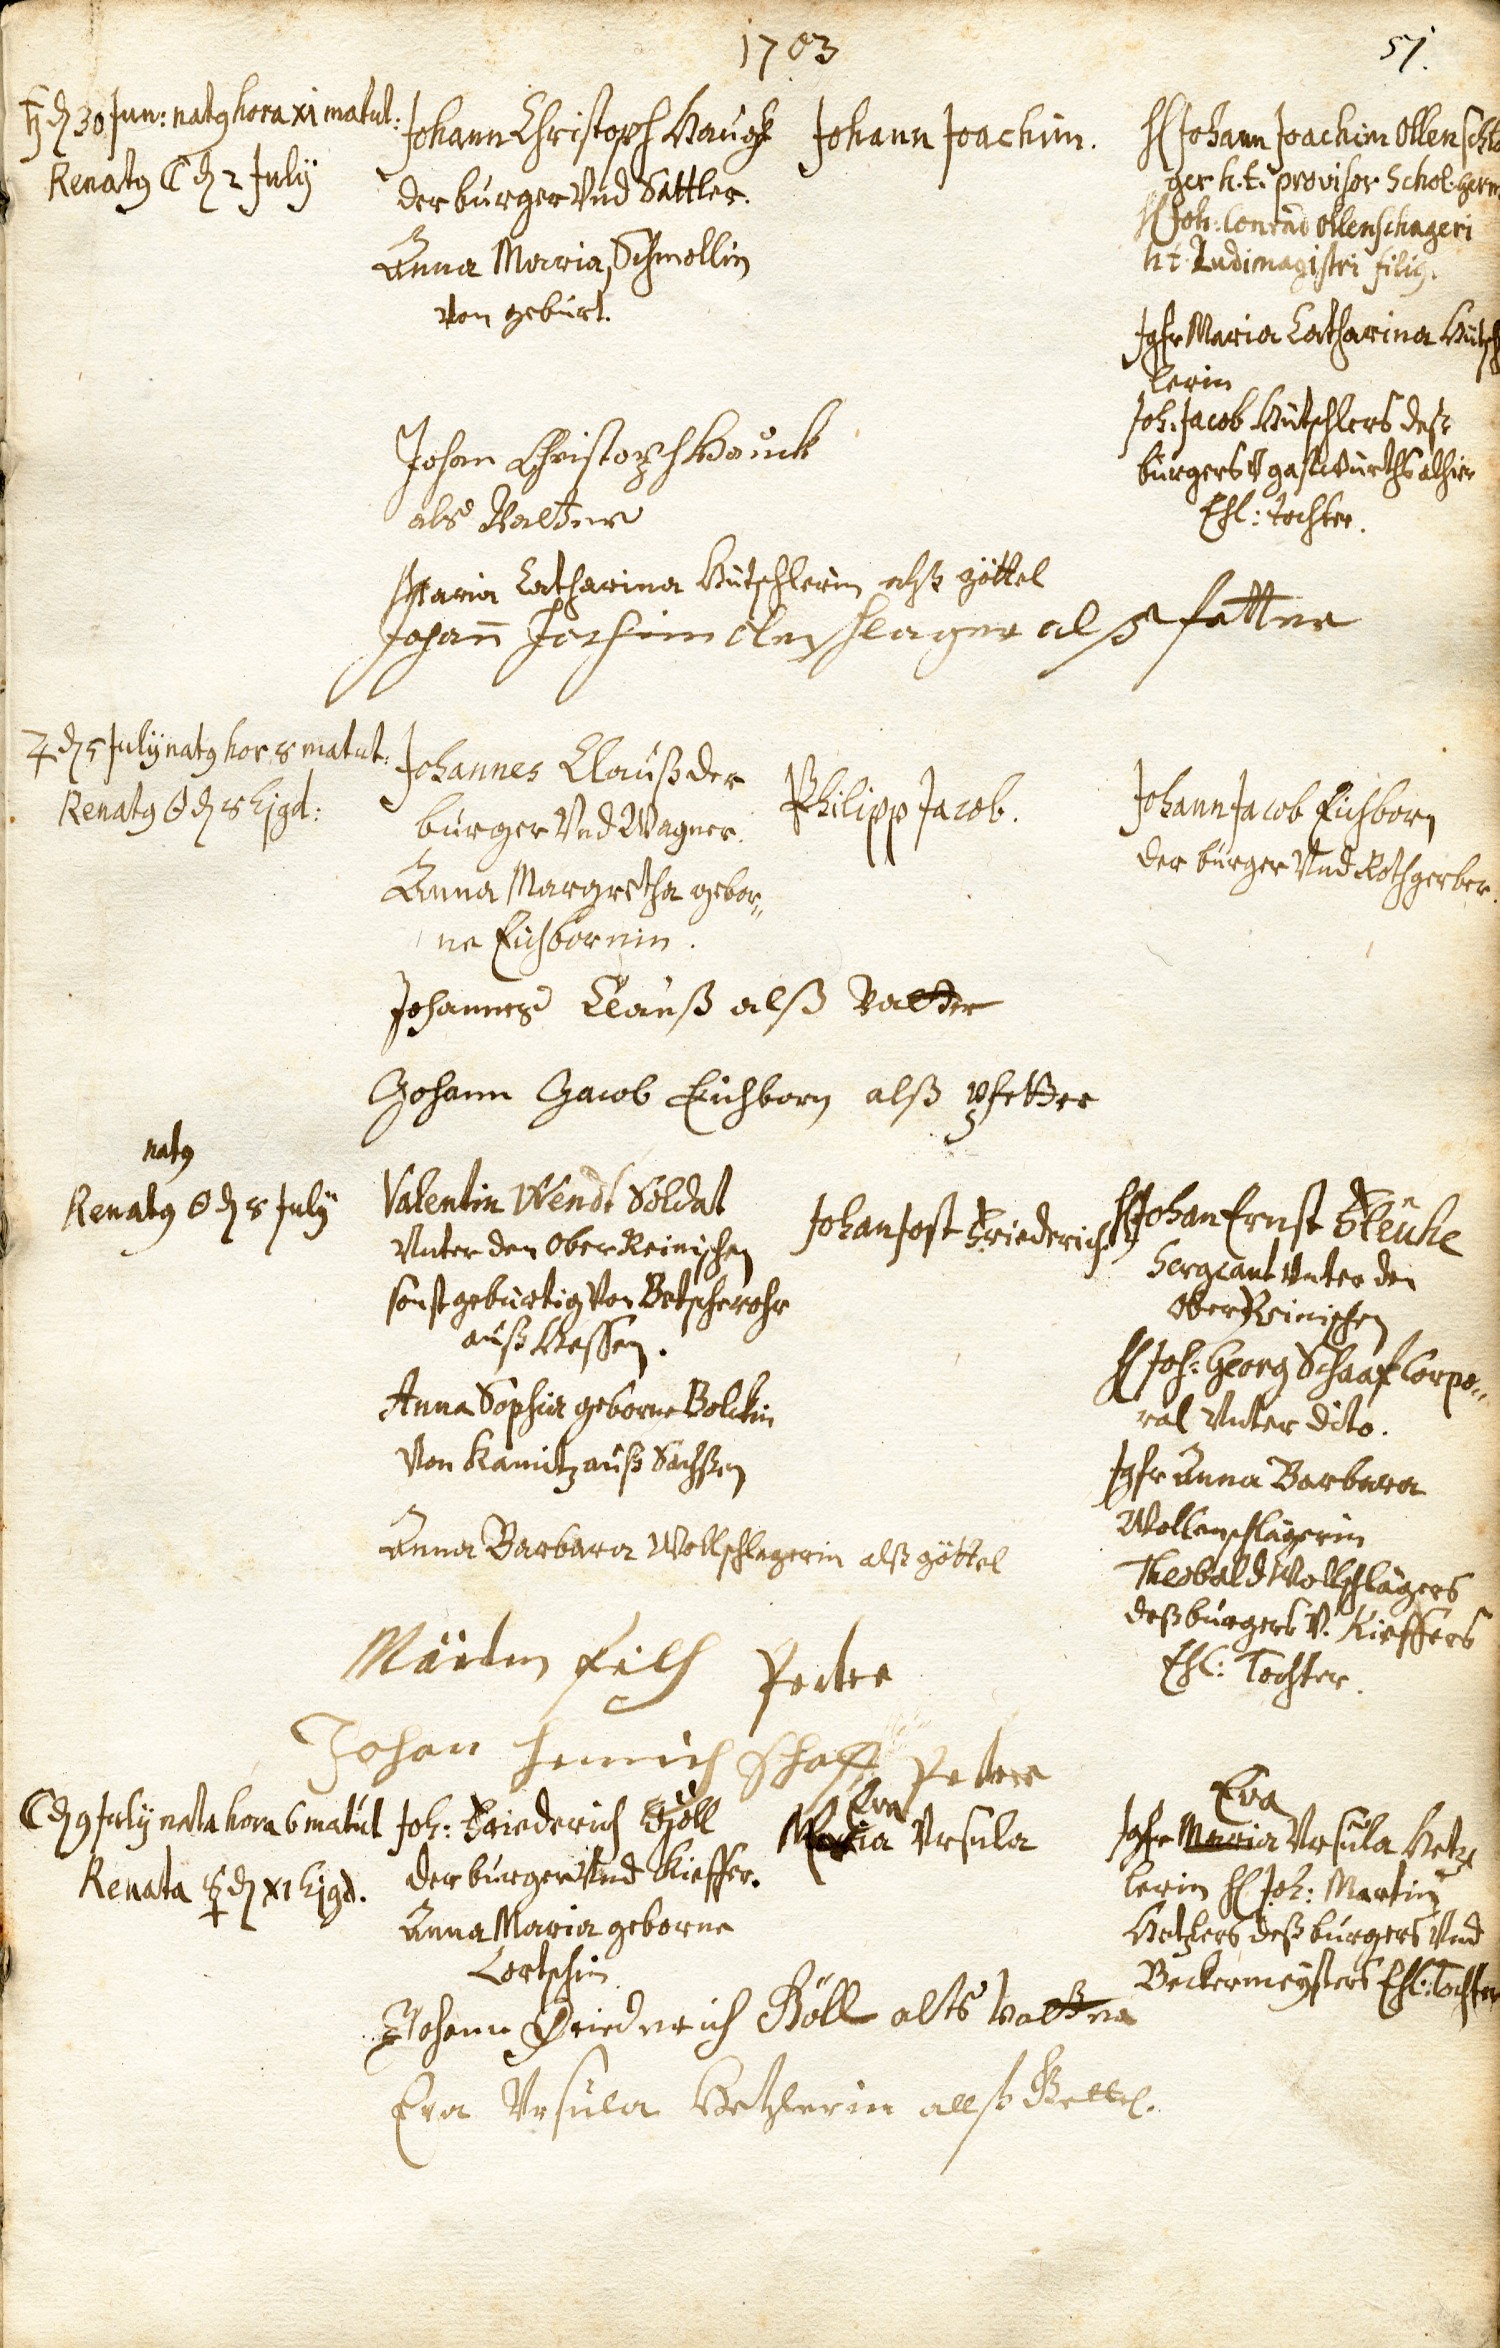 1703
51.
♄ d 30 Jun: natꝰ hora xi matut:
Renatꝰ ☾ d 2 July
Johann Christoph Hauck
der burger Vnd Sattler.
Anna Maria, Schmollin
von geburt.
Johann Joachim.
H Johann Joachim Ollenschla
ger h.t. provisor Schol. germ
H Joh: Conrad Ollenschlageri
h t. Ludimagistri filiꝰ.
Jgfr Maria Catharina Hütsch
lerin
Joh: Jacob Hütschlers deß
burgers V gastwürths alhier
Ehl: tochter.
Johan Christoph Hauck
als Vatter
Maria Catharina Hütschlerin alß göttel
Johann Jochim olenschlager alß fetter
♃ d 5 July natꝰ hor. 8 matut:
Renatꝰ ☉ d 8 hjgd:
Johannes Clauß der
burger Vnd Wagner.
Anna Margretha gebor„
ne Eichbornin.
Philipp Jacob.
Johann Jacob Eichborn
der burger Vnd Rothgerber.
Johannes Clauß alß Vatter
Johann Jacob Eichborn alß pfetter
natꝰ
Renatꝰ ☉ d 8 July
Valentin Wendt Soldat
Vnter den Ober Reinischen
sonst gebürtig Von Betscherohr
auß Hessen.
Anna Sophia geborne Bolckin
Von Kamitz auß Sachßen
Johan Jost Friederich
H Johan Ernst Steuke
Sergeant Vnter den
Ober Reinischen
H Joh: Georg Schaaf Corpo„
ral Vnter dito.
Jgfr Anna Barbara
Wollenschlägerin
Theobald Wollschlägers
deß burgers V. Kieffers
Ehl: Tochter.
Anna Barbara Wollschlagerin alß göttel
Petter
Johan Henrich Schaff Petter
☾ d 9 July nata hora 6 matut
Renata ☿ d XI hjgd.
Joh: Friederich Böll
der burger Vnd Kieffer.
Anna Maria geborne
Lortschin
Eva
Maria Vrsula
Eva
Jgfr Maria Vrsula Hetz
lerin H Joh: Martin
Hetzlers deß burgers Vnd
Beckermeysters Ehl: Tochter
Johann Friederich Böll alts Vatter
Eva Vrsula Hetzlerin allß Gettel.